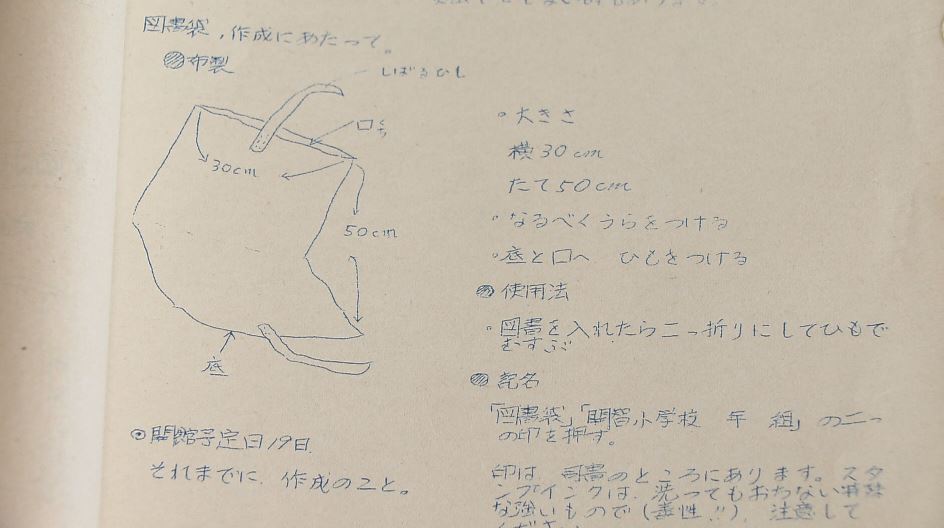 図書袋,作成にあたって。
布製
しばるひも
口
30cm
50cm
底
開館予定日19日
それまでに、作成のこと。
大きさ
横30cm
たて50cm
なるべくうらをつける
底と口へ ひもをつける
使用法
図書を入れたら二つ折りにしてひもで
むすぶ
記名
「図書袋」「開智小学校 年 組」の二つ
の印を押す。
印は、司書のところにあります。スタ
ンプインクは、洗ってもおちない特殊
な強いもので(毒性!!)注意して
ください